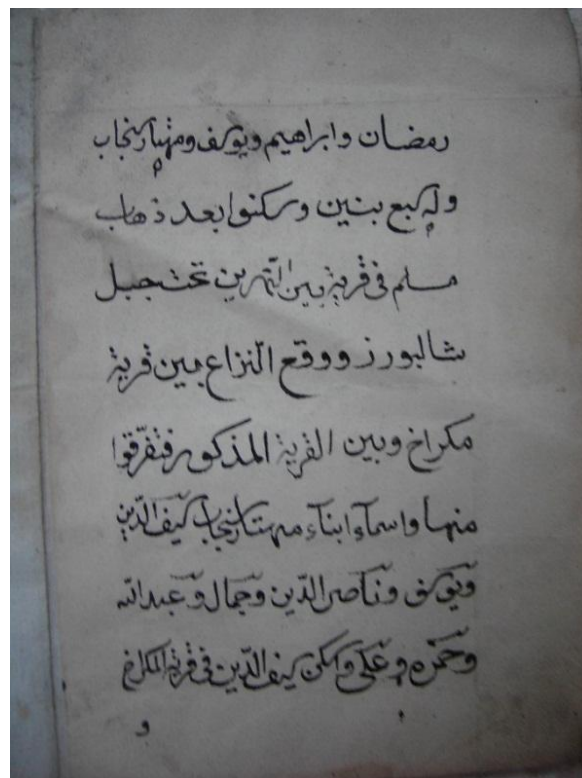 رمضان وابراهيم ويوسف ومهتار سنجاب
وله سبع بنين وسكنوا بعد ذهاب
مسلم فى قرية بين النهرين تحت جبل
شالبورز ووقع النزاع بين قرية
مكراخ وبين القرية المذكور فتفرّقوا
منها واسمآء ابنآء مهتار سنجاب سيف الدّين
ويوسف وناصر الدّين وجمال وعبد الله
وحمزه وعلى وسكن سيف الدّين فى قرية المكراخ
و